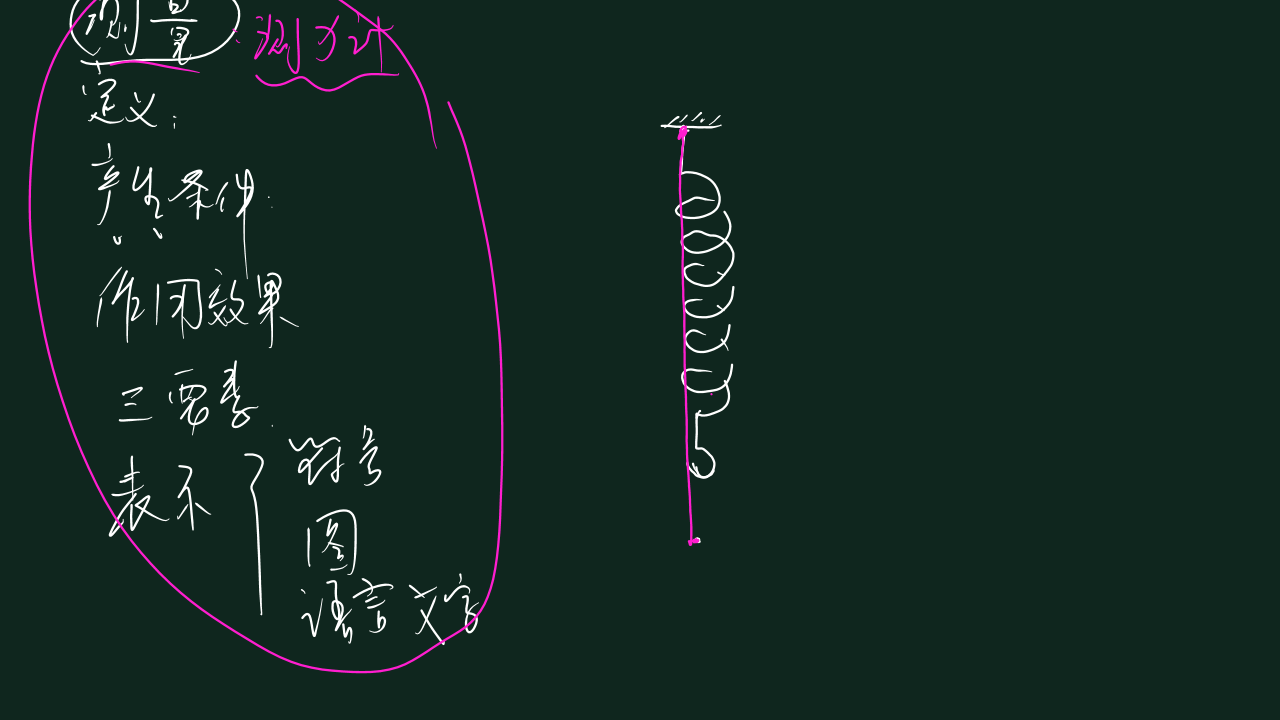 测量:测力计
定义:
产生条件:
作用效果
三要素
表示
符号
图
语言文字